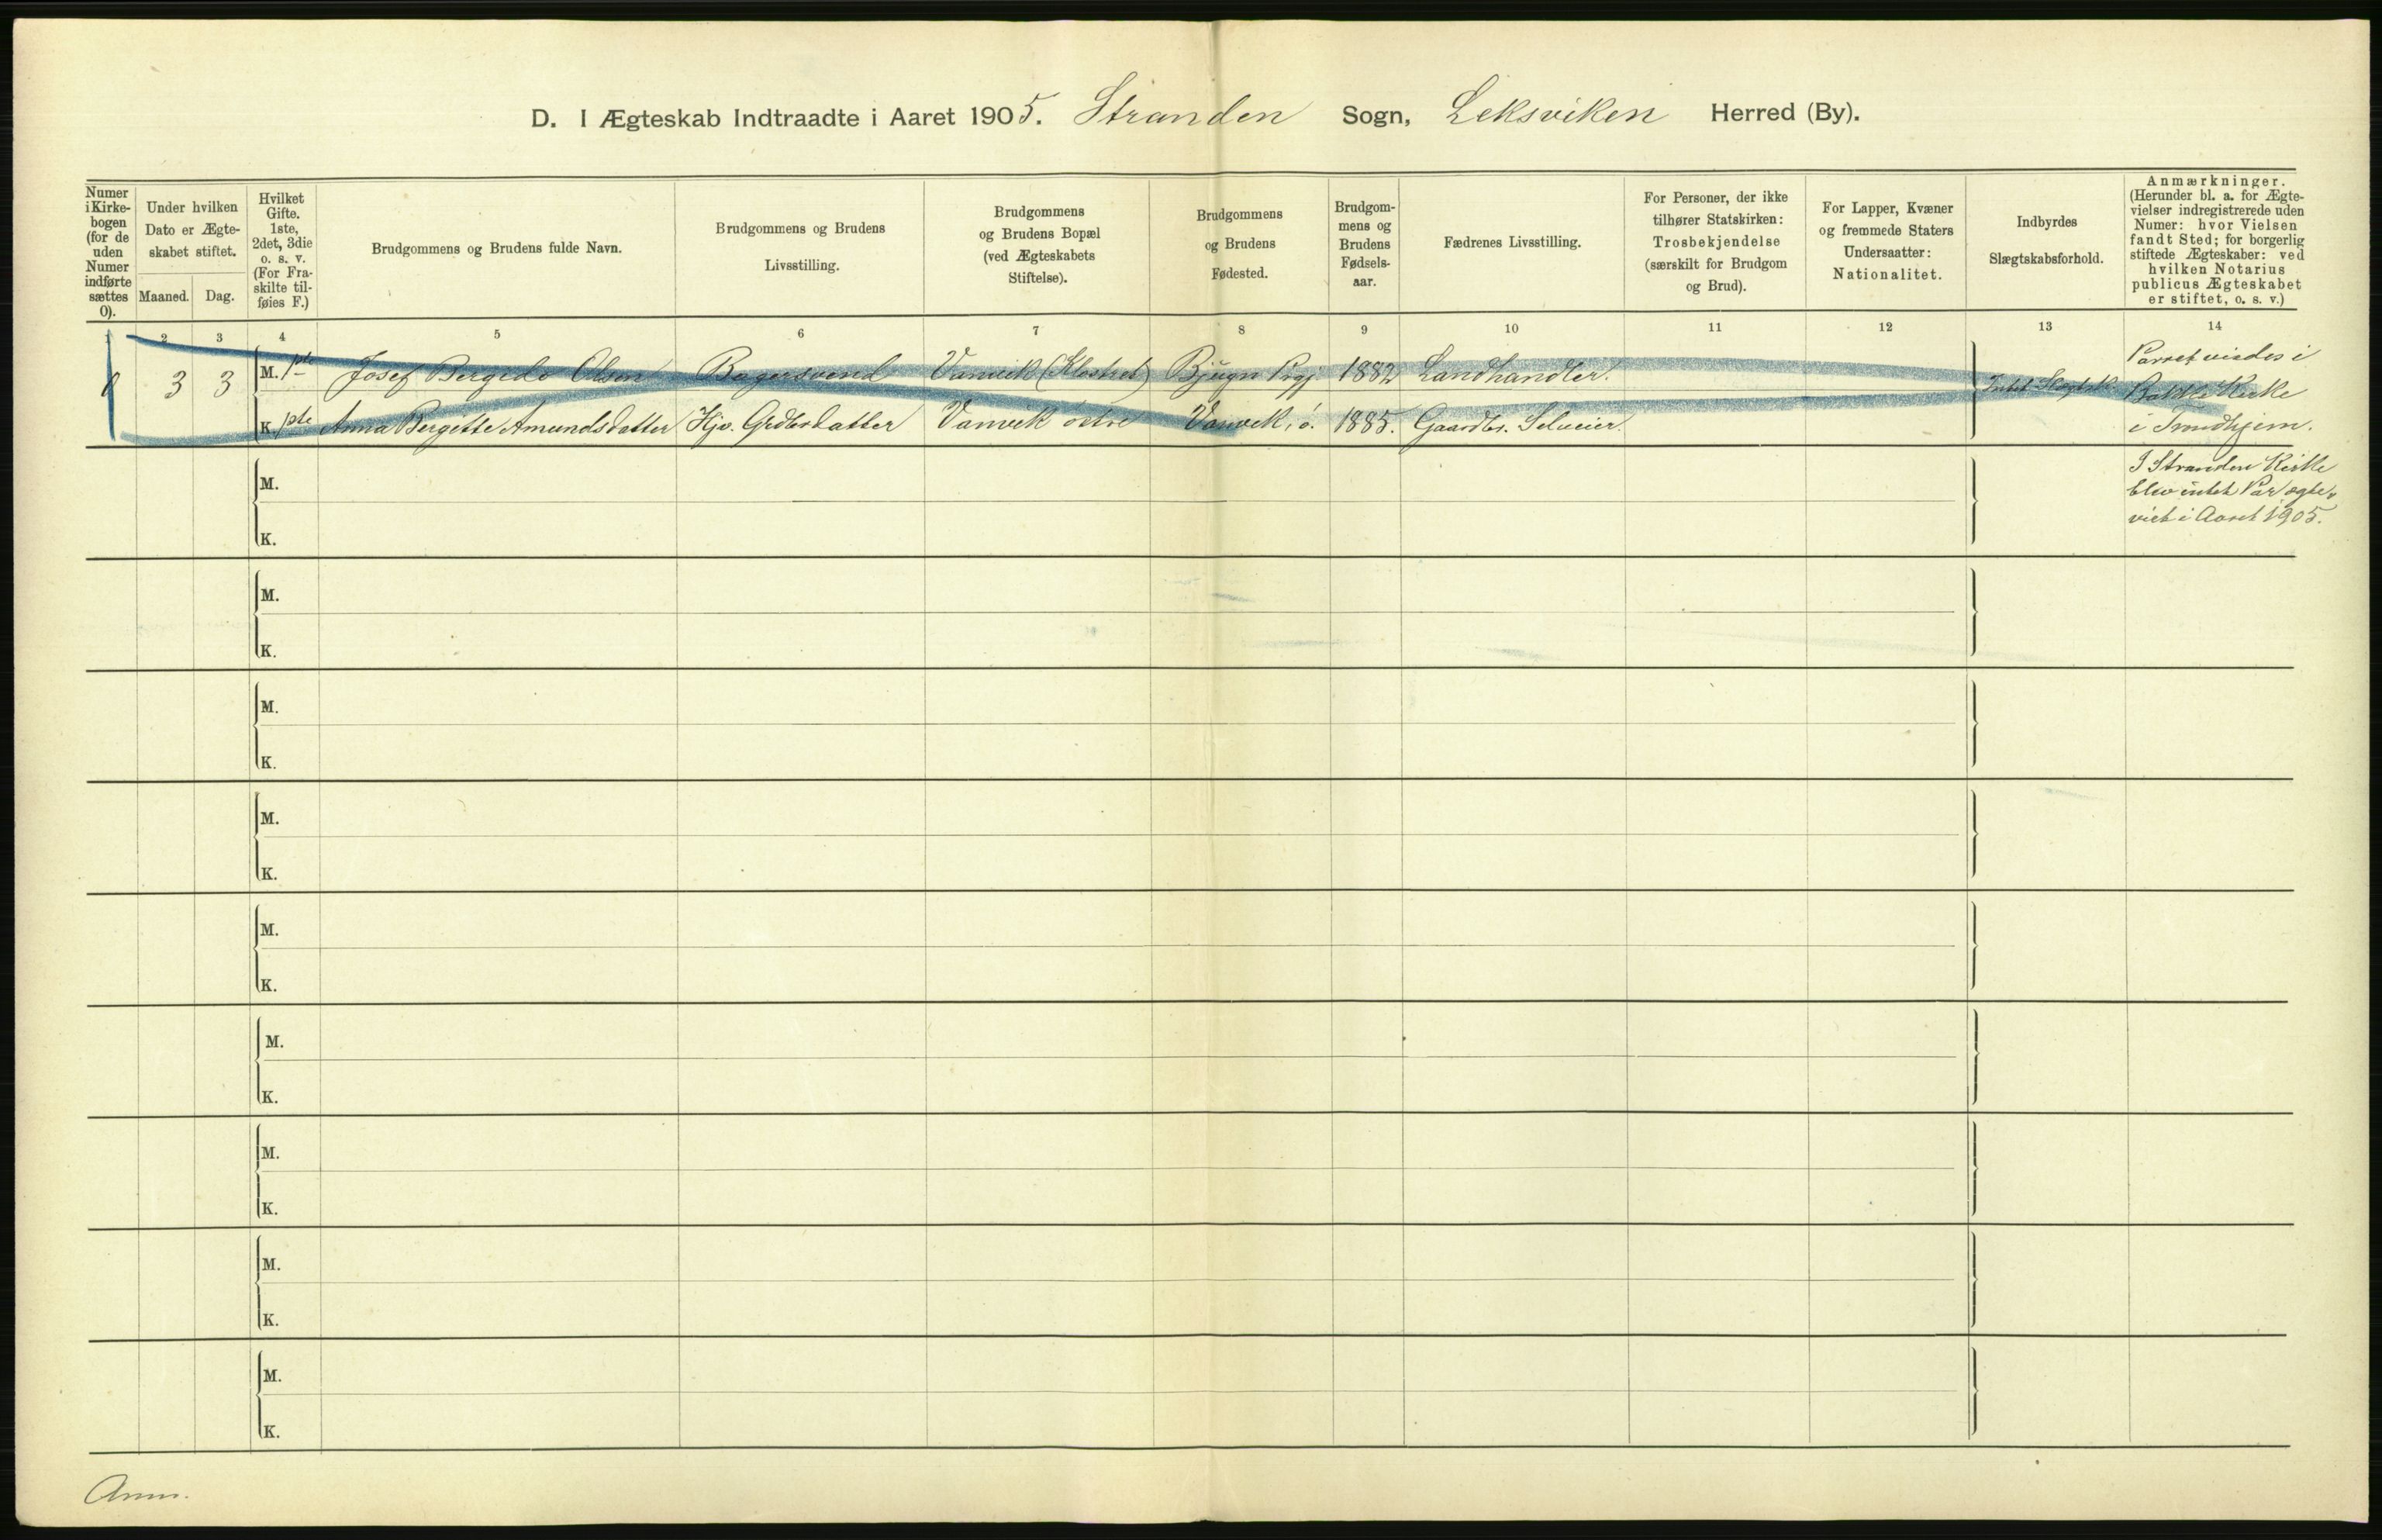 D. I Ægteskab Indtraadte i Aaret 1905. Stranden Sogn, Leksviken Herred (By).
Numer i Kirke-bogen (for de uden Numer indførte sættes 0).
Under hvilken Dato er Ægte-skabet stiftet.
Maaned. Dag.
Hvilket Gifte. 1ste, 2det, 3die o. s. v. (For Fra-skilte til-føies F.)
Brudgommens og Brudens fulde Navn.
Brudgommens og Brudens Livsstilling.
Brudgommens og Brudens Bopæl (ved Ægteskabets Stiftelse).
Brudgommens og Brudens Fødested.
Brudgom-mens og Brudens Fødsels-aar.
Fædrenes Livsstilling.
For Personer, der ikke tilhører Statskirken: Trosbekjendelse (særskilt for Brudgom og Brud).
For Lapper, Kvæner og fremmede Staters Undersaatter: Nationalitet.
Indbyrdes Slægtskabsforhold.
Anmærkninger. (Herunder bl. a. for Ægte-vielser indregistrerede uden Numer: hvor Vielsen fandt Sted; for borgerlig stiftede Ægteskaber: ved hvilken Notarius publicus Ægteskabet er stiftet, o. s. v.)
2 3 4 5 6 7 8 9 10 11 12 13 14
0 3 3
M. 1ste Josef Bergedo Olsen Bagersvend Vanvik (Klostret) Bjugn Prgj. 1882 Landhandler.
K. 1ste Anna Bergitte Amundsdatter Hjv. Grdbrdatter Vanvik østre Vanvik, ø. 1885. Gaardbr. Selveier.
Intet Slægtsk.
Parret viedes i
Bakke Kirke
i Trondhjem.
M.
K.
I Stranden Kirke
blev intet Par ægte-
viet i Aaret 1905.
M.
K.
M.
K.
M.
K.
M.
K.
M.
K.
M.
K.
M.
K.
M.
K.
Anm.